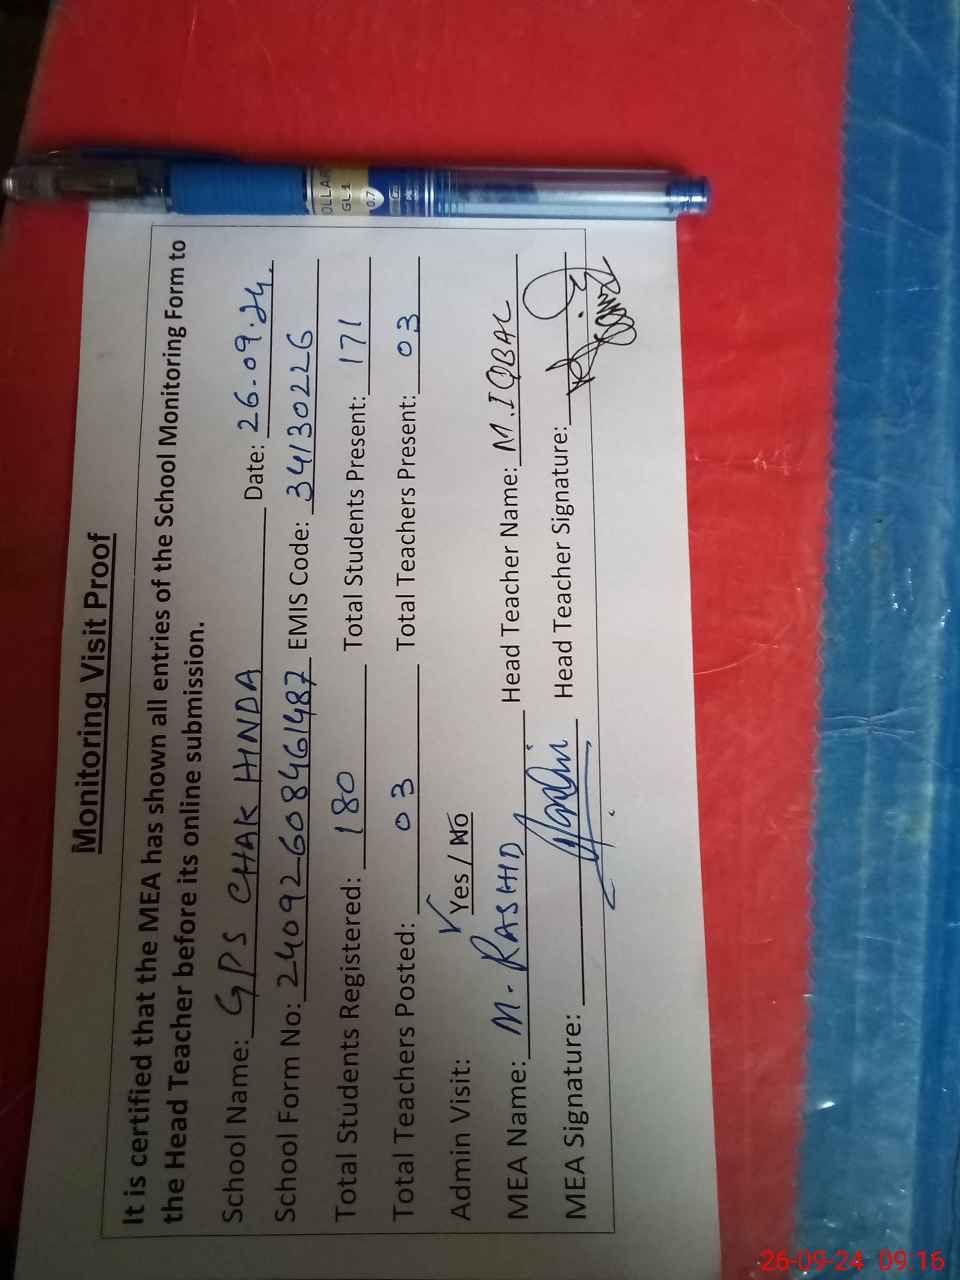 Monitoring Visit Proof
It is certified that the MEA has shown all entries of the School Monitoring Form to
the Head Teacher before its online submission.
School Name: GPS CHAK HINDA Date: 26-09-24.
School Form No: 24092608461487 EMIS Code: 34130226
Total Students Registered: 180 Total Students Present: 171
Total Teachers Posted: 03 Total Teachers Present: 03
Admin Visit: Yes / No
MEA Name: M. RASHID Head Teacher Name: M. IQBAL
MEA Signature: Head Teacher Signature:
DOLLAR
GL1
0.7
26-09-24 09:16